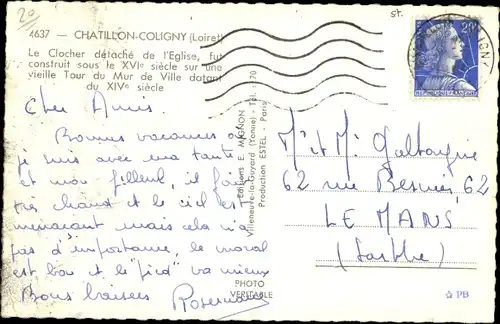 20
4637 — CHATILLON-COLIGNY (Loiret)
Le Clocher détaché de l'Eglise, fut
construit sous le XVIe siècle sur une
vieille Tour du Mur de Ville datant
du XIVe siècle
Cher Amis.
Bonnes vacances où
je suis avec ma tante
et mon filleul il fait
très chaud et le ciel est
menaçant mais cela n'a
pas d'importance, le moral
est bon et le "pied" va mieux
Bons baisers
Editions E. MIGNON
Villeneuve-la-Guyard (Yonne) - Tél. : 70
Production ESTEL - Paris
PHOTO
VERITABLE
st.
20F
COLIGNY
M et Me
62 rue 62
LE MANS
(Sarthe)
☆ PB